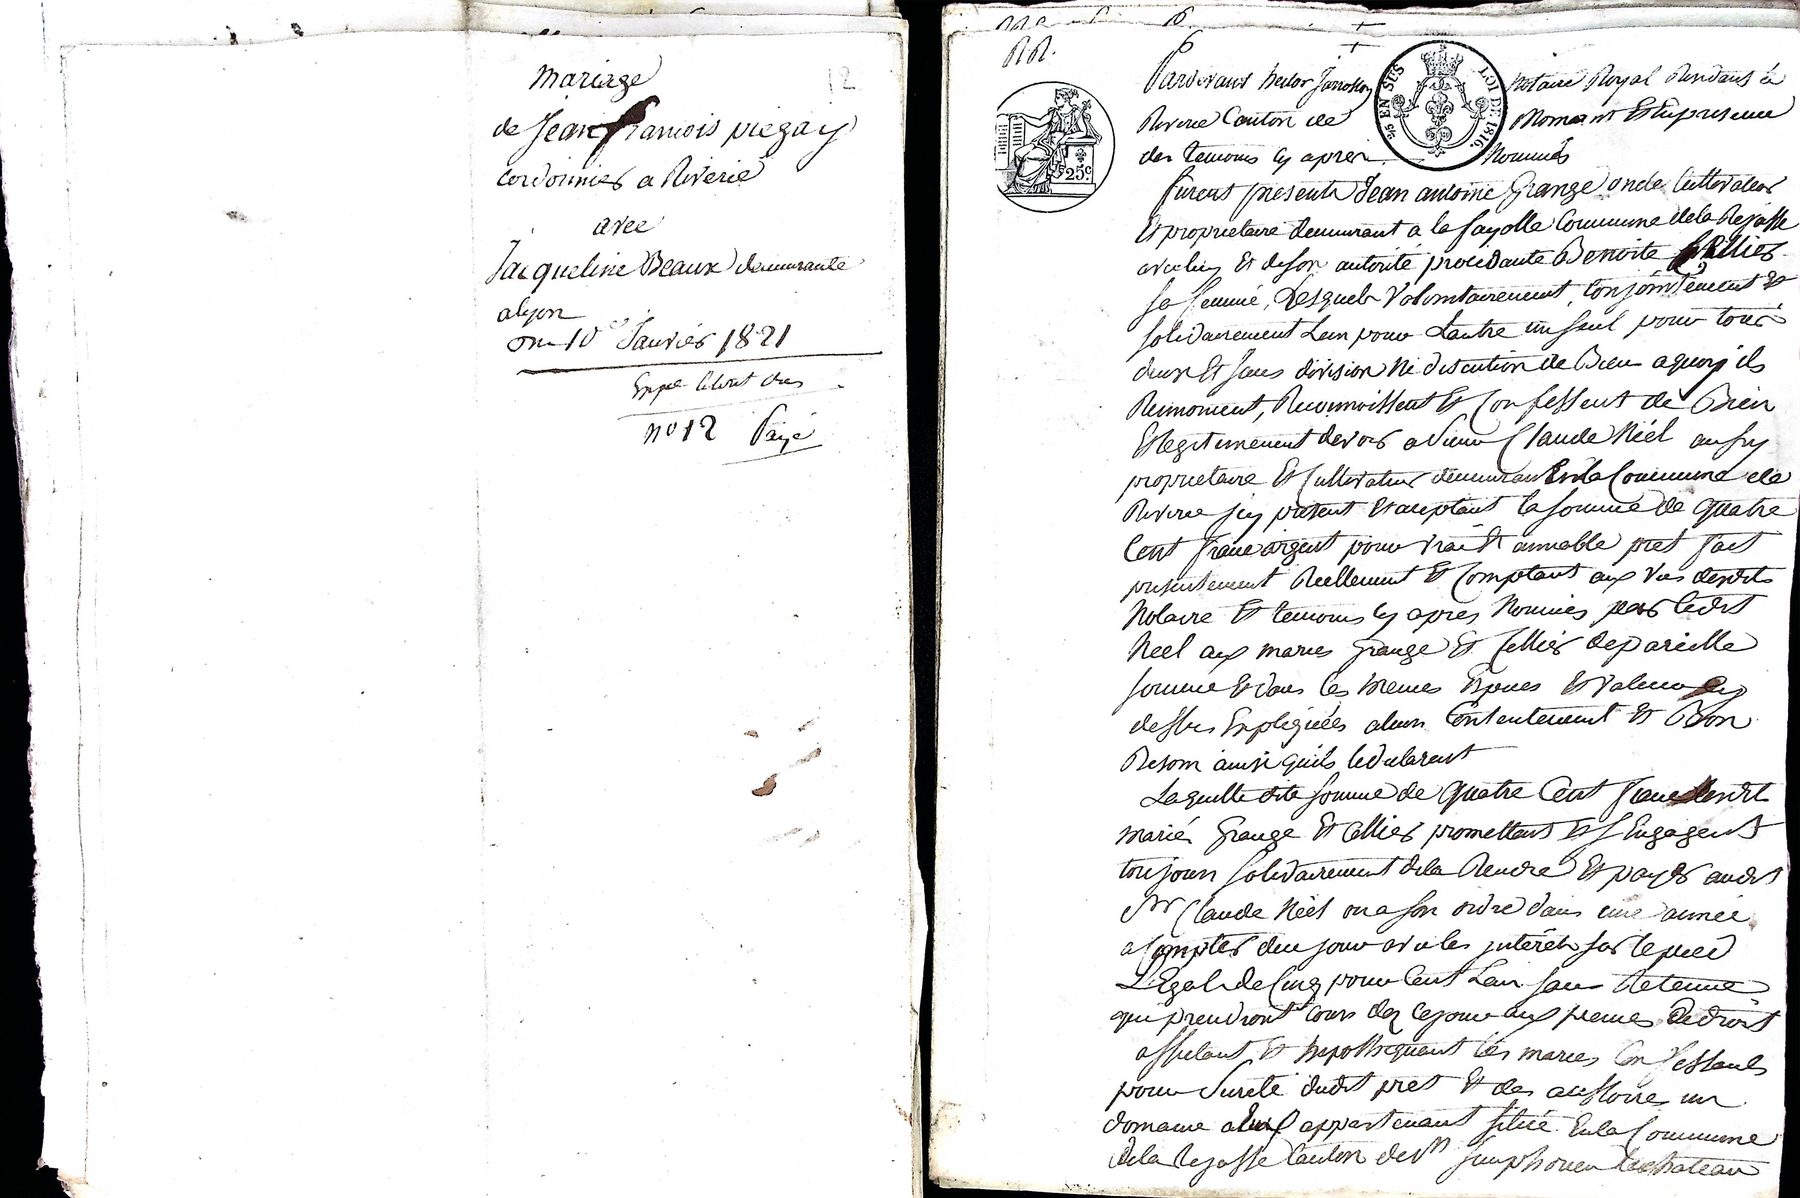 12
Mariage
de Jean françois piégay
Cordonnier a Riverie
avec
Jacqueline Beaux demeurante
a lyon
Du 10 Janvier 1821
Expé
nº 12 Payé
25 EN SUS
LOI DE 1816.
25 c.
Pardevant hector Notaire Royal Residant à
Riverie Canton de Mornant Et En presence
des temoins cy après Nommés
furent présents Jean antoine Grange onde Cultivateur
Et proprietaire demeurant a la fayolle Commune de la Rajasse
avec luy Et de son autorité procédante Benoite Cellier
sa femme, Lesquels volontairement, Conjointement Et
solidairement L'un pour L'autre un seul pour tous
deux Et sans division Ni discution de Bien a quoy ils
Renoncent, Reconnoissent Et Confessent de Bien
Et legitimement devoir a sieur Claude Néel aussy
proprietaire Et Cultivateur demeurant En la Commune de
Riverie icy présent Et acceptant la somme de quatre
Cent franc argent pour vrai Et amiable pret fait
presentement Reellement Et Comptant aux vus desdits
Notaire Et temoins cy après Nommés par ledit
Néel aux mariés Grange Et Cellier de pareille
somme Et dans les memes Especes Et valeur cy
dessus Expliquées a leur Contentement Et Bon
Resom ainsi qu'ils le declarent
Laquelle dite somme de quatre Cent franc lesdits
mariés Grange Et Cellier promettent Et s'Engagent
toujours solidairement de la Rendre Et payer audit
Sr Claude Néel ou a son ordre dans une année
a Compter de ce jour avec les intérêts sur le pied
L'Egal de Cinq pour Cent L'an sans Retenue
qui prendront Cours des ce jour aux peines de droit
affectant Et hypothequant les mariés Confessants
pour Sureté dudit pret Et des accessoires un
domaine a Eux appartenant situé En la Commune
de la Rajasse Canton de St Simphorien le château